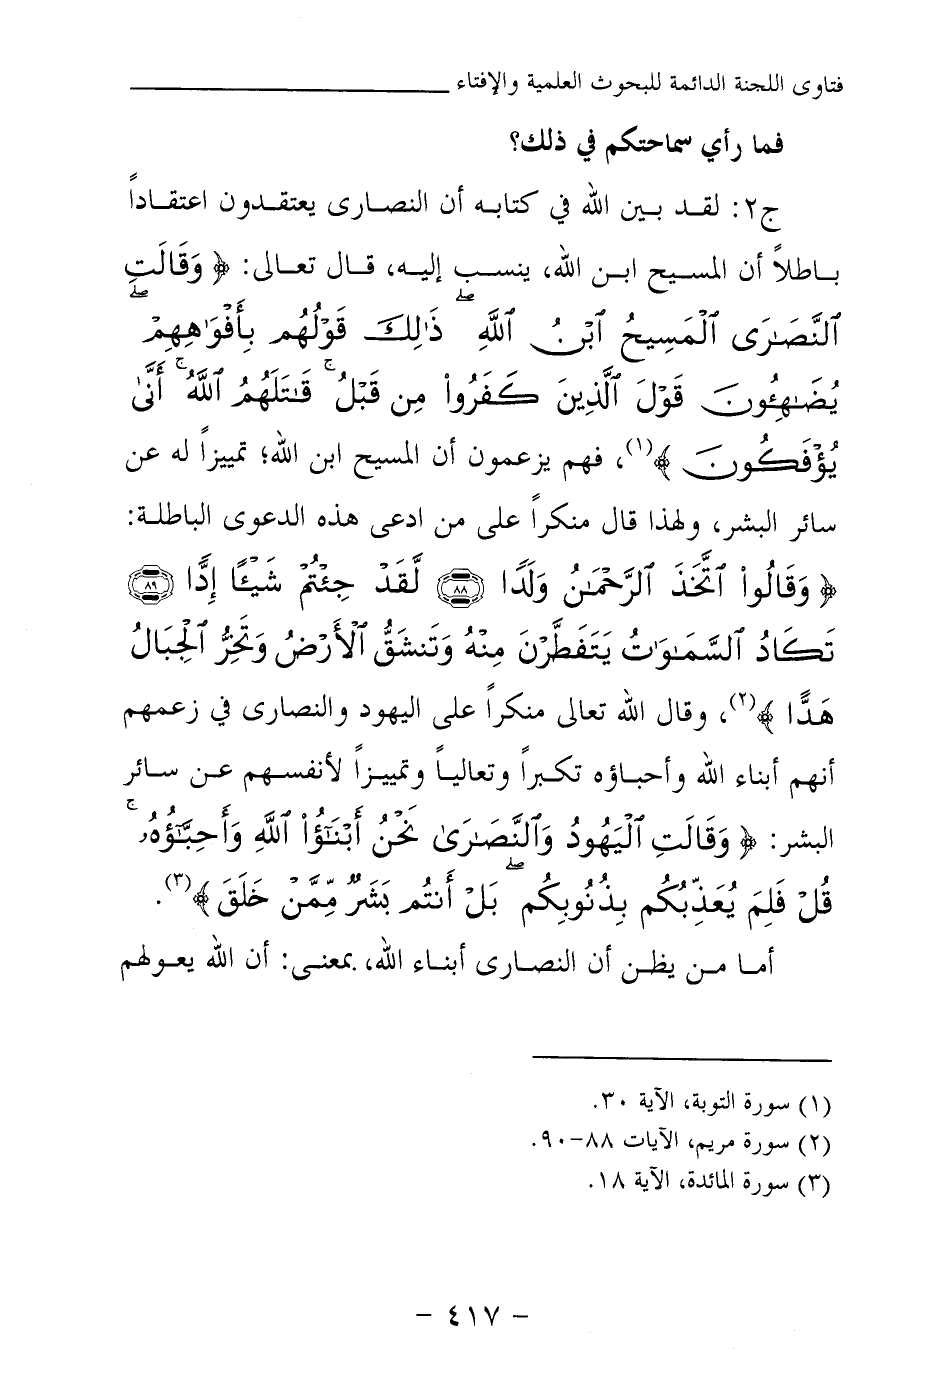 فتاوى اللجنة الدائمة للبحوث العلمية والإفتاء
فما رأي سماحتكم في ذلك؟
ج٢: لقد بين الله في كتابه أن النصارى يعتقدون اعتقاداً
باطلاً أن المسيح ابن الله، ينسب إليه، قال تعالى: ﴿ وَقَالَتِ
ٱلنَّصَٰرَى ٱلْمَسِيحُ ٱبْنُ ٱللَّهِۖ ذَٰلِكَ قَوْلُهُم بِأَفْوَٰهِهِمْۖ
يُضَٰهِـُٔونَ قَوْلَ ٱلَّذِينَ كَفَرُوا۟ مِن قَبْلُۚ قَٰتَلَهُمُ ٱللَّهُۚ أَنَّىٰ
يُؤْفَكُونَ ﴾(١)، فهم يزعمون أن المسيح ابن الله؛ تمييزاً له عن
سائر البشر، ولهذا قال منكراً على من ادعى هذه الدعوى الباطلة:
﴿ وَقَالُوا۟ ٱتَّخَذَ ٱلرَّحْمَٰنُ وَلَدًا ٨٨ لَّقَدْ جِئْتُمْ شَيْـًٔا إِدًّا ٨٩
تَكَادُ ٱلسَّمَٰوَٰتُ يَتَفَطَّرْنَ مِنْهُ وَتَنشَقُّ ٱلْأَرْضُ وَتَخِرُّ ٱلْجِبَالُ
هَدًّا ﴾(٢)، وقال الله تعالى منكراً على اليهود والنصارى في زعمهم
أنهم أبناء الله وأحباؤه تكبراً وتعالياً وتمييزاً لأنفسهم عن سائر
البشر: ﴿ وَقَالَتِ ٱلْيَهُودُ وَٱلنَّصَٰرَىٰ نَحْنُ أَبْنَٰٓؤُا۟ ٱللَّهِ وَأَحِبَّٰٓؤُهُۥۚ
قُلْ فَلِمَ يُعَذِّبُكُم بِذُنُوبِكُمۖ بَلْ أَنتُم بَشَرٌ مِّمَّنْ خَلَقَ ﴾(٣).
أما من يظن أن النصارى أبناء الله، بمعنى: أن الله يعولهم
(١) سورة التوبة، الآية ٣٠.
(٢) سورة مريم، الآيات ٨٨-٩٠.
(٣) سورة المائدة، الآية ١٨.
- ٤١٧ -